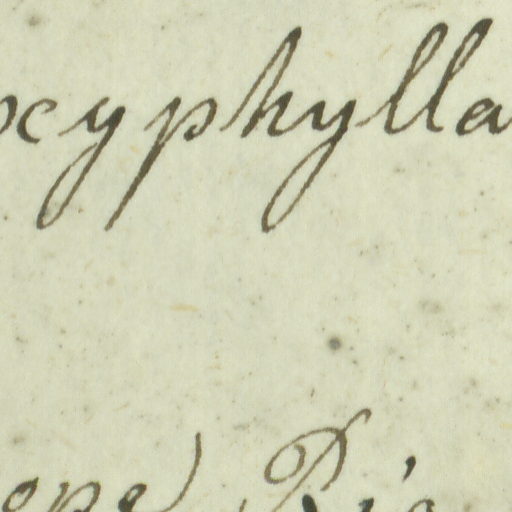 xyphylla
ope) Rio